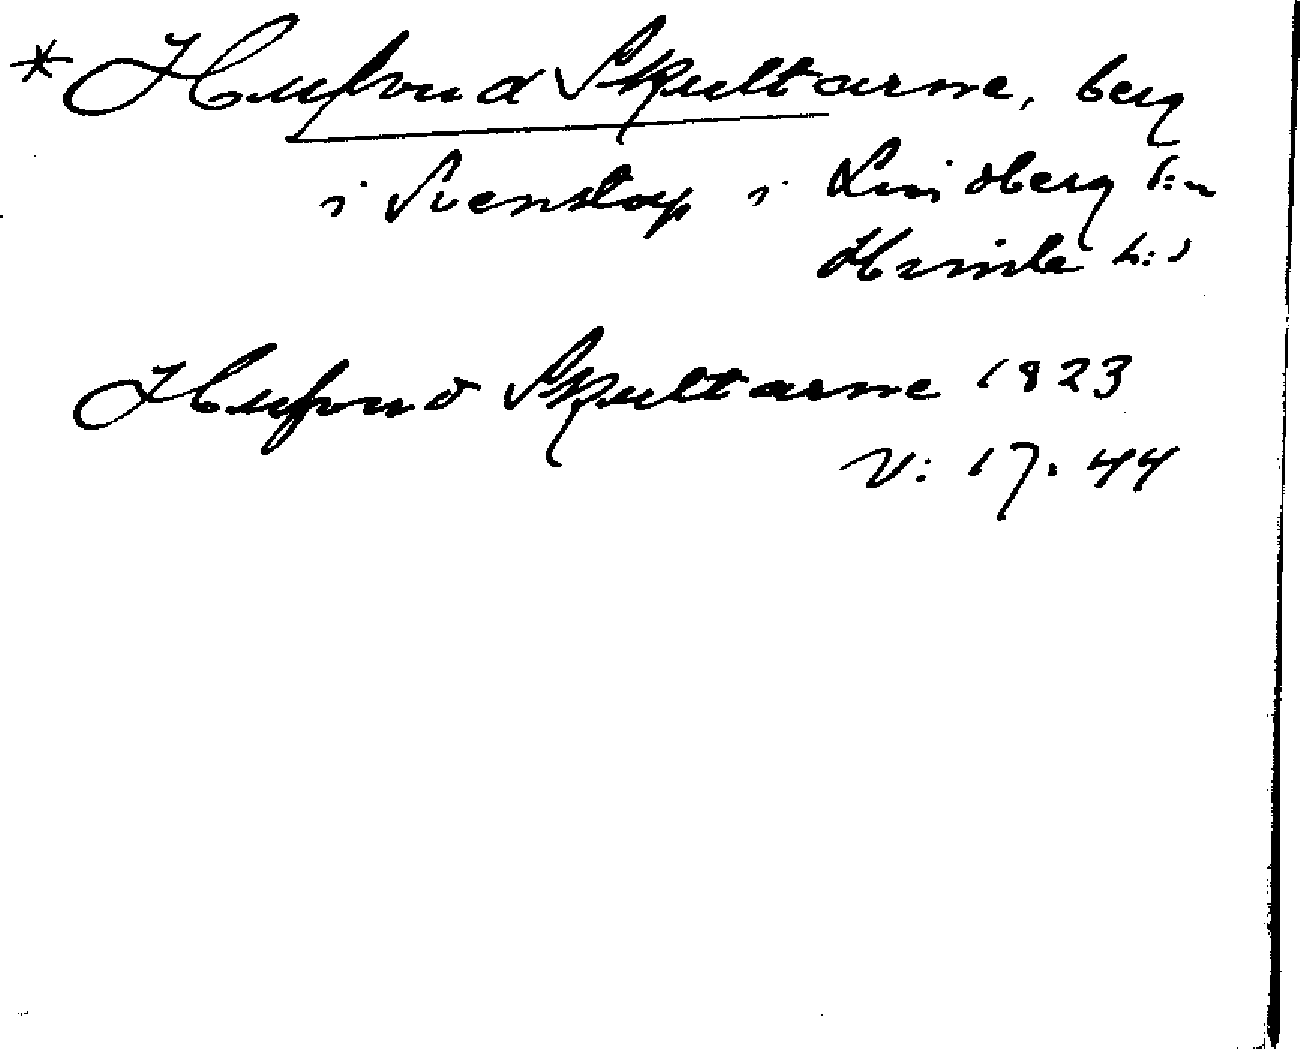 * Hufvud Skultarne, berg
i Svenstorp i Lindberg s:n
Himle h:d
Hufvud Skultarne 1823
V: 17. 44